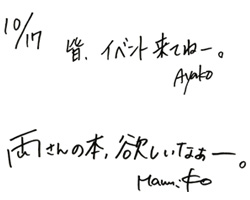 10/17
皆、イベント来てねー。
Ayako
両さんの本,欲しいなぁー。